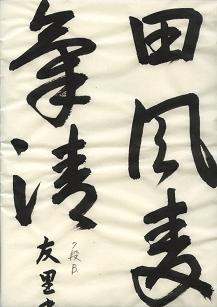 田風麦
氣清
7段 B.
友里